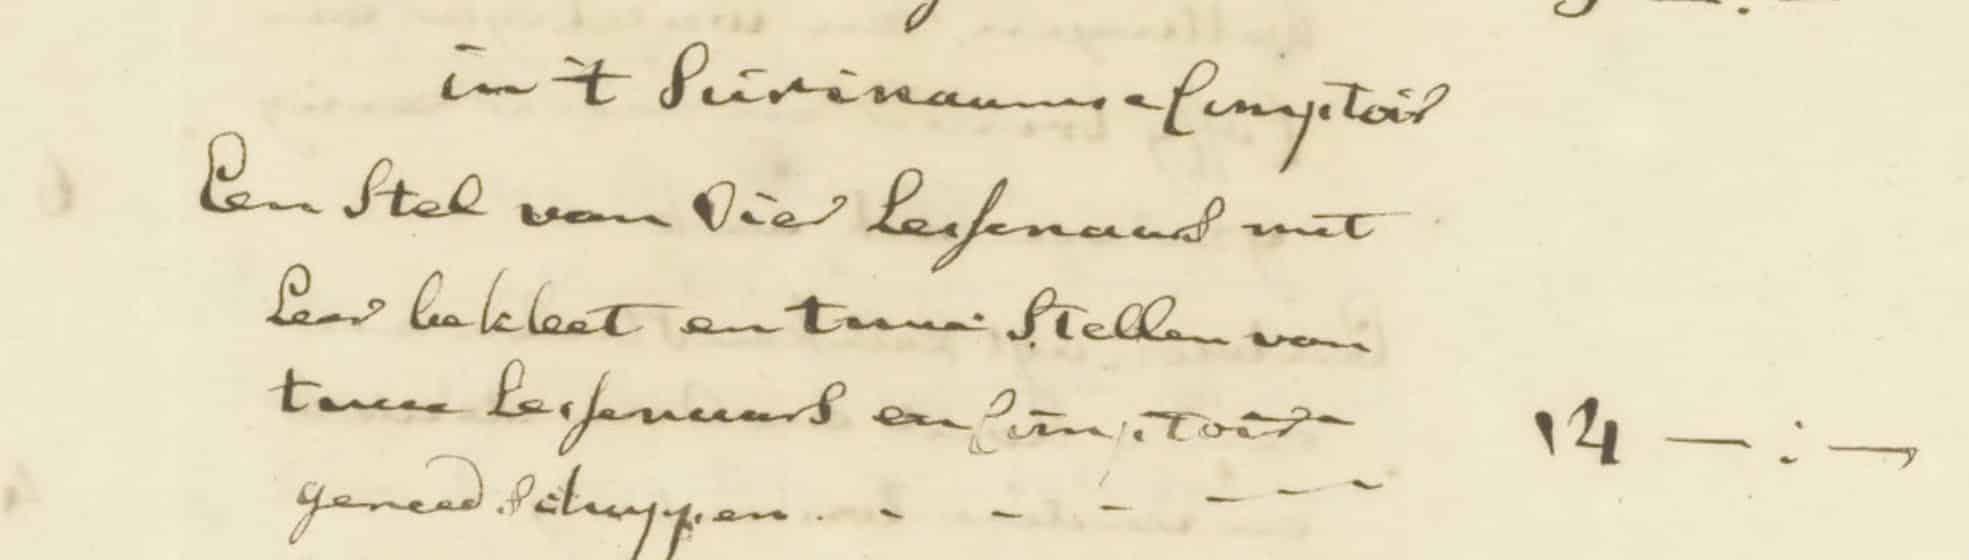 in 't Surinaamse Comptoir
Een Stel van Vier Lessenaars met
Leer bekleet en twee Stellen van
twee Lessenaars en Comptoir
gereedschappen . - - - - - - 14 — : —